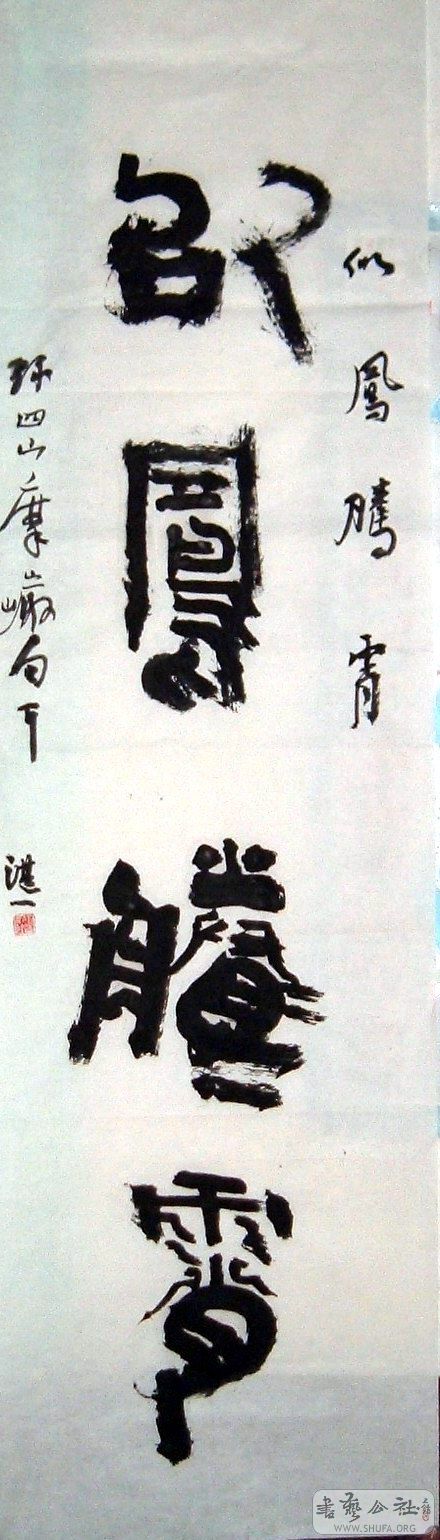 似鳳騰霄
似鳳騰霄
環四山摩巌句
湛一
書藝公社
WWW.SHUFA.ORG